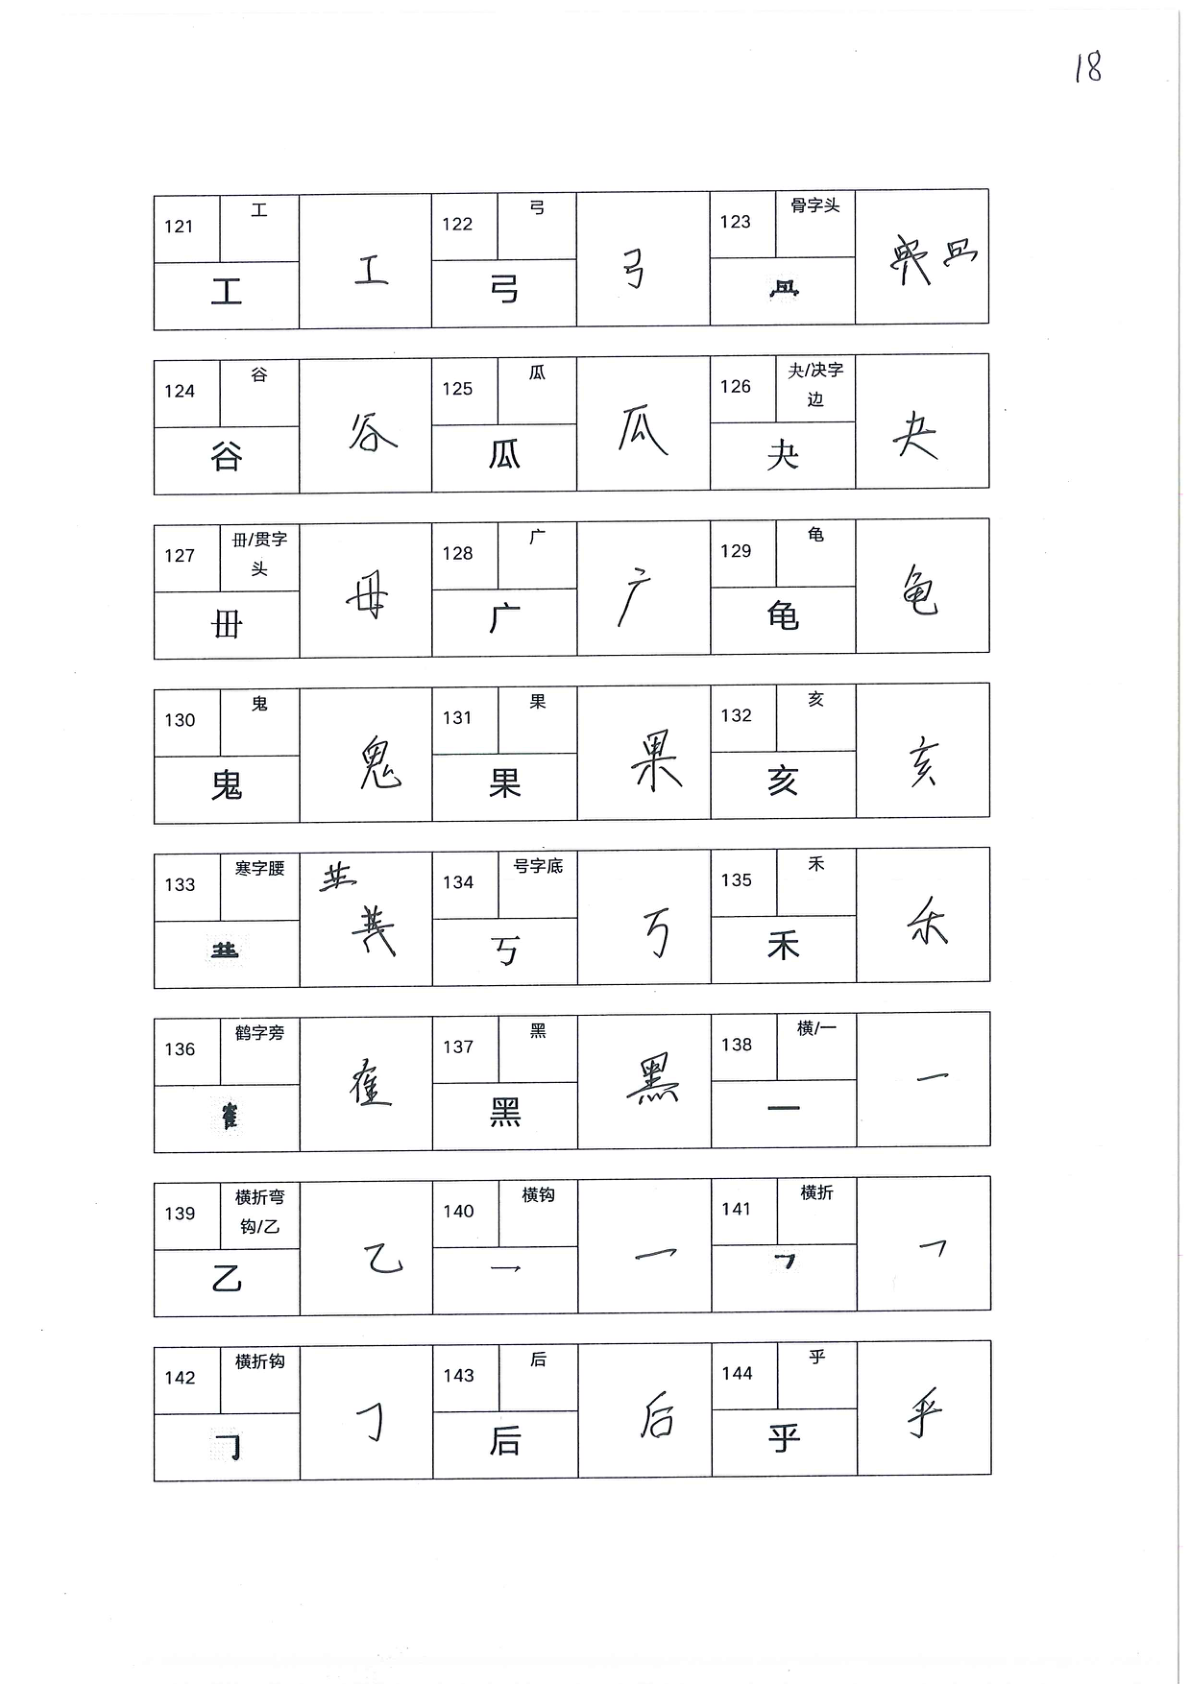 18
121 工 工 122 弓 弓 123 骨字头
工 弓
124 谷 谷 125 瓜 瓜 126 夬/决字边 夬
谷 瓜 夬
127 毌/贯字头 毌 128 广 广 129 龟 龟
毌 广 龟
130 鬼 鬼 131 果 果 132 亥 亥
鬼 果 亥
133 寒字腰 134 号字底 丂 135 禾 禾
丂 禾
136 鹤字旁 隺 137 黑 黑 138 横/一 一
隺 黑 一
139 横折弯钩/乙 乙 140 横钩 乛 141 横折 ㇕
乙 乛 ㇕
142 横折钩 ㇆ 143 后 后 144 乎 乎
㇆ 后 乎